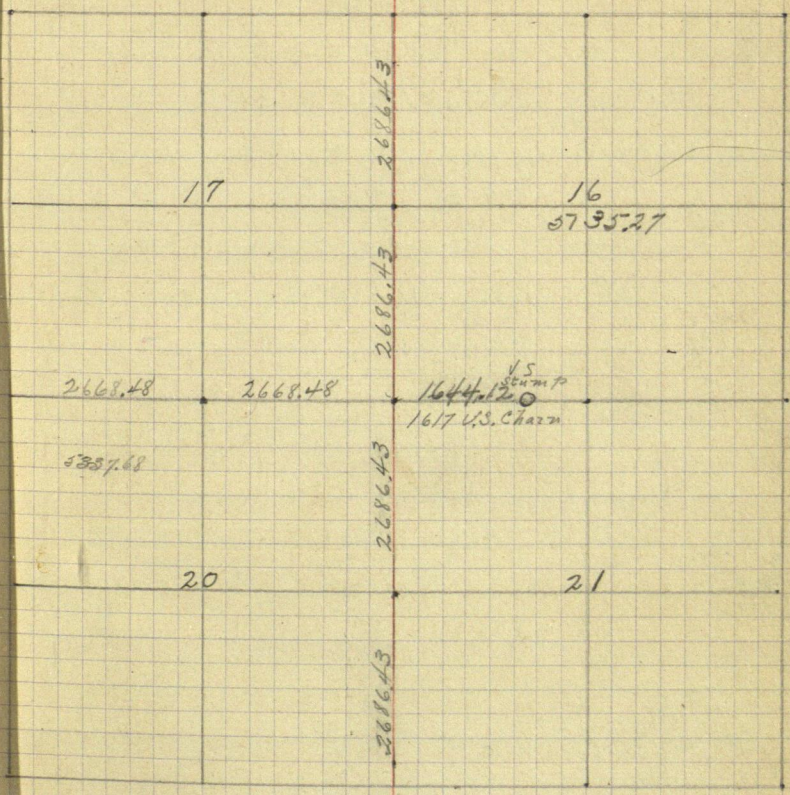 2686.43
17
16
5735.27
2686.43
2668.48
2668.48
1644.12
U.S
Stump
1617 U.S. Chain
5337.68
2686.43
20
21
2686.43